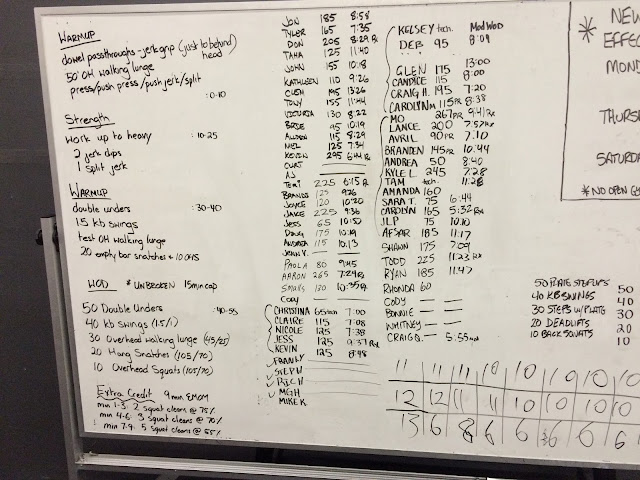 WARMUP
dowel passthroughs - jerk grip (just to behind head)
50' OH walking lunge
press/push press/push jerk/split
:0-10
Strength
work up to heavy :10-25
2 jerk dips
1 split jerk
WARMUP
double unders :30-40
15 kb swings
test OH walking lunge
20 empty bar snatches + 10 OHS
WOD * UNBROKEN 15min cap
50 Double Unders :40-55
40 kb swings (1.5/1)
30 Overhead walking lunge (45/25)
20 Hang Snatches (105/70)
10 Overhead Squats (105/70)
Extra Credit 9 min EMOM
min 1-3: 2 squat cleans @ 75%
min 4-6: 3 squat cleans @ 70%
min 7-9: 5 squat cleans @ 65%
JON 185 8:58
TYLER 165 7:35
DON 205 8:29
TAHA 125 11:40
JOHN 155 10:18
KATHLEEN 110 9:26
CUSH 195 13:26
TONY 155 11:44
VICTORIA 130 8:22
BRISE 95 10:19
115 8:29
MEL 125 7:34
KEVIN 295 6:44
CURT
AJ
TERI 225 6:15
BRANDI 123 9:26
JOYCE 120 10:20
JAKE 225 9:36
JESS 65 10:50
DOUG 175 10:19
ANDREA 115 10:13
JENN V.
PAOLA 80 9:45
AARON 265 7:24 Rx
130 10:35
CODY
CHRISTINA 65 tech 7:00
CLAIRE 115 7:08
NICOLE 125 7:38
JESS 125 9:37 Rx
KEVIN 125 8:48
FRANKY
STEPH
RICH
MGH
MIKE K
KELSEY tech. Mod WOD
DEB 95 8:09
GLEN 175 13:00
CANDICE 115 8:00
CRAIG H. 195 7:20
CAROLYN M 115 PR 8:38
MO 267 PR 9:41 Rx
LANCE 200 7:57 Rx
AVRIL 90 PR 7:10
BRANDEN 145 PR 10:44
ANDREA 50 8:40
KYLE L 245 7:28
TAM tech. 11:28
AMANDA 160
SARA T. 75 6:44
CAROLYN 165 5:32 Rx
JLP 75 10:10
AFSAR 185 11:17
SHAWN 175 7:09
TODD 225 11:23 Rx
RYAN 185 11:47
RHONDA 60
CODY
BONNIE
WHITNEY
CRAIG D. 5:55
* NEW
EFFE
MOND
THURS
SATURDA
* NO OPEN G
50 PLATE STEPUPS 50
40 KB SWINGS 40
30 STEPS W/ PLATE 30
20 DEADLIFTS 20
10 BACK SQUATS 10
11 11 11 10 10 10 10 10
12 12 11 11 10 10 10 10
13 6 8 6 6 6 6 6